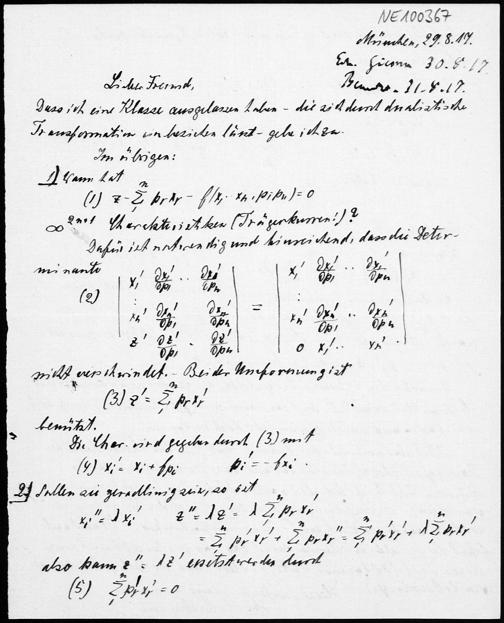 NE100367
München, 29.8.17.
30.8.17
31.8.17.
Lieber Freund,
Dass ich eine Klasse ausgelassen habe – die sich durch dualistische
Transformation einbeziehen lässt – gebe ich zu.
Im übrigen:
1) Wann hat
(1) z - Σ₁ⁿ pᵣxᵣ - f(x₁..xₙ, p₁pₙ) = 0
∞²ⁿ⁻¹ Charakteristiken (Trägerkurven!)?
Dafür ist notwendig und hinreichend, dass die Deter-
minante
(2) | x₁' ∂x₁'/∂p₁ .. ∂x₁'/∂pₙ | = | x₁' ∂x₁'/∂p₁ .. ∂x₁'/∂pₙ |
⋮ ⋮
xₙ' ∂xₙ'/∂p₁ ∂xₙ'/∂pₙ xₙ' ∂xₙ'/∂p₁ .. ∂xₙ'/∂pₙ
z' ∂z'/∂p₁ .. ∂z'/∂pₙ 0 x₁' .. xₙ'
nicht verschwindet. – Bei der Umformung ist
(3) z' = Σ₁ⁿ pᵣxᵣ'
benützt.
Die Char. wird gegeben durch (3) mit
(4) xᵢ' = xᵢ + fpᵢ pᵢ' = - fxᵢ.
2) Sollen sie geradlinig sein, so ist
xᵢ'' = λxᵢ' z'' = λz' = λ Σ₁ⁿ pᵣxᵣ'
= Σ₁ⁿ pᵣ'xᵣ' + Σ₁ⁿ pᵣxᵣ'' = Σ₁ⁿ pᵣ'xᵣ' + λ Σ₁ⁿ pᵣxᵣ'
also kann z'' = λz' ersetzt werden durch
(5) Σ₁ⁿ pᵣ'xᵣ' = 0